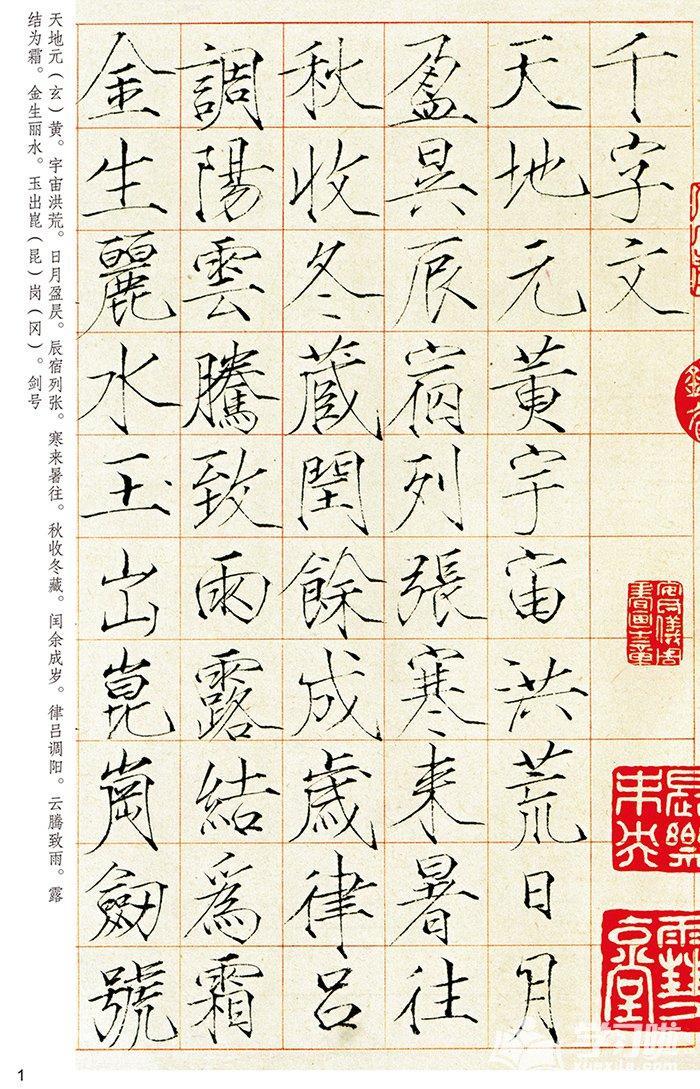 千字文
天地元黃宇宙洪荒日月
盈昃辰宿列張寒来暑往
秋收冬蔵閏餘成歲律呂
調陽雲騰致雨露結爲霜
金生麗水玉出崑崗劒號
天地元（玄）黄。宇宙洪荒。日月盈昃。辰宿列张。寒来暑往。秋收冬藏。闰余成岁。律吕调阳。云腾致雨。露
结为霜。金生丽水。玉出崑（昆）岗（冈）。剑号
長樂
未央
1
学习啦